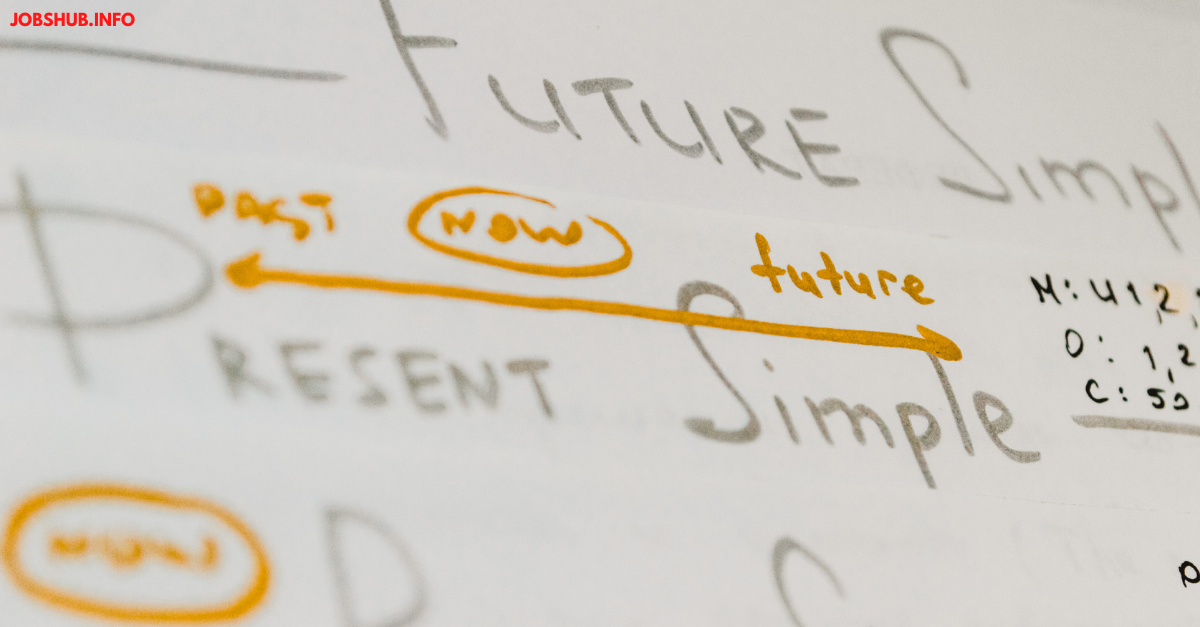 JOBSHUB.INFO
FUTURE Simpl
PAST NOW future
PRESENT Simple
M: U 1, 2,
O: 1, 2
C: 50
NOW P